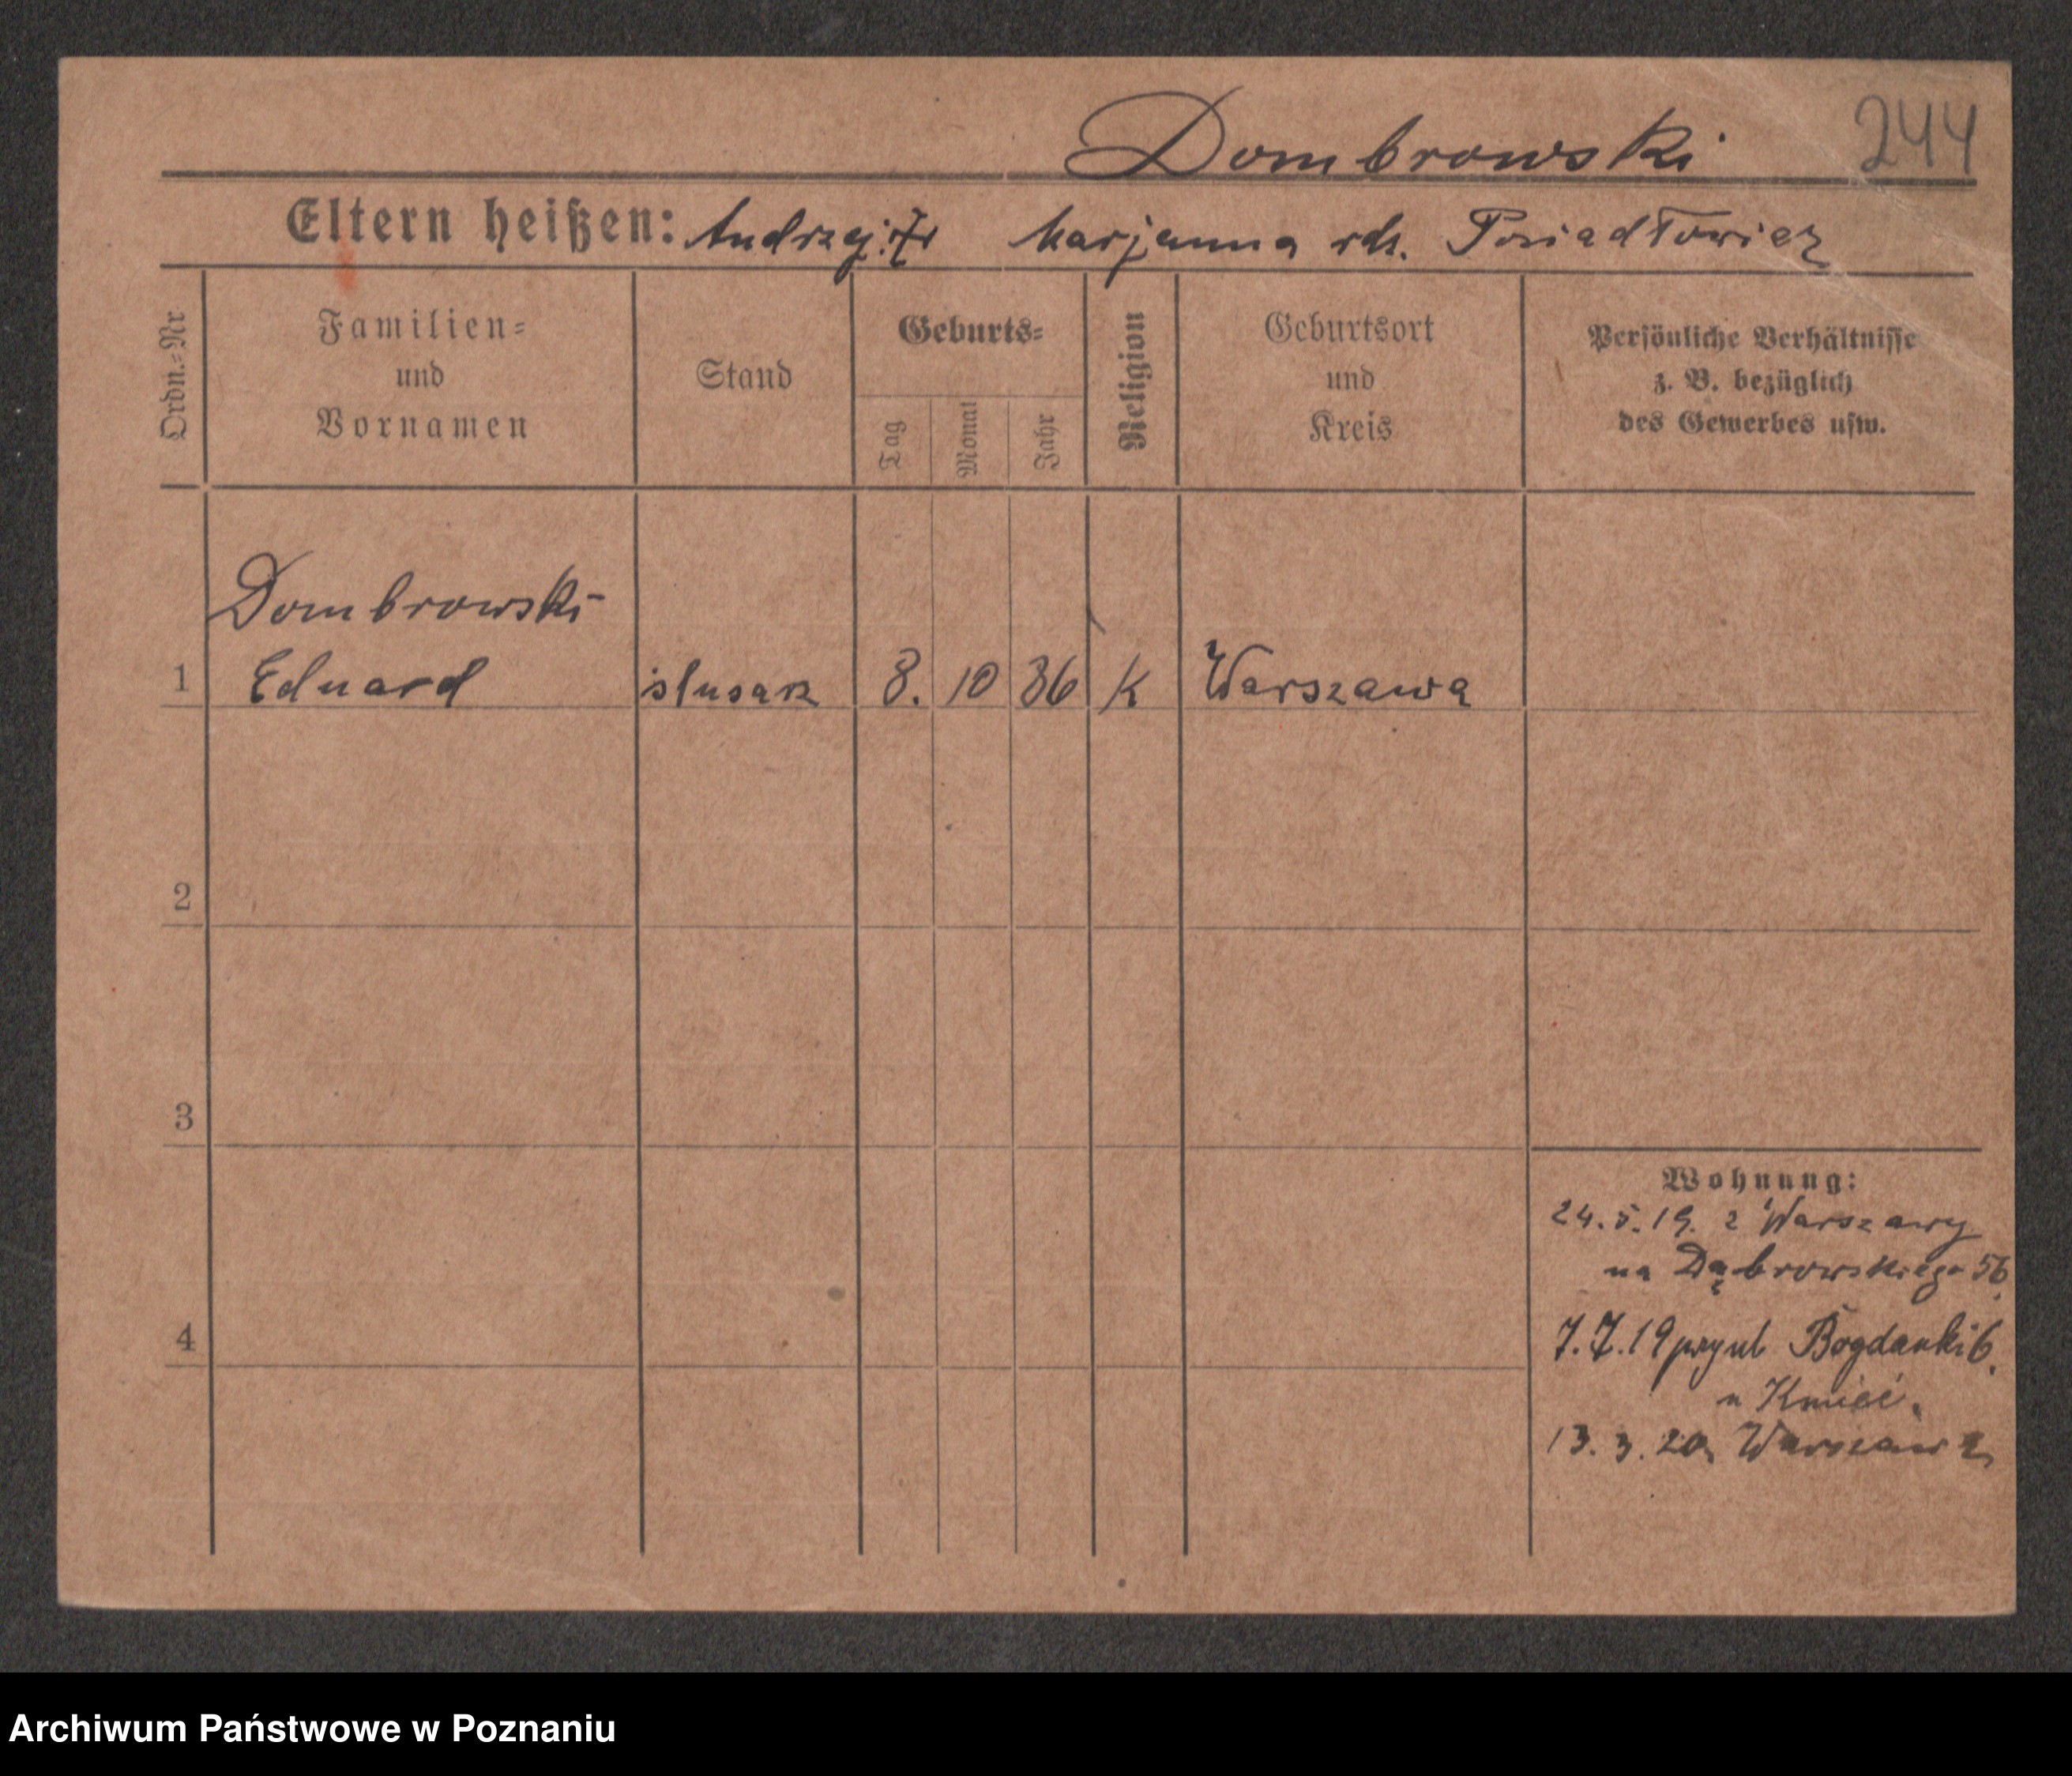 Dombrowski 244
Eltern heißen: Andrzej Marjanna Posiadłowicz
Ordn.=Nr
Familien=
und
Vornamen
Stand
Geburts=
Tag
Monat
Jahr
Religion
Geburtsort
und
Kreis
Persönliche Verhältnisse
z. B. bezüglich
des Gewerbes usw.
Dombrowski
1 Eduard ślusarz 8. 10 86 K Warszawa
2
3
4
Wohnung:
24.5.19. z Warszawy
na Dąbrowskiego 56
7.7.19 przy ul Bogdanki 6.
u Kmieć.
13.3.20. Warszawa
Archiwum Państwowe w Poznaniu